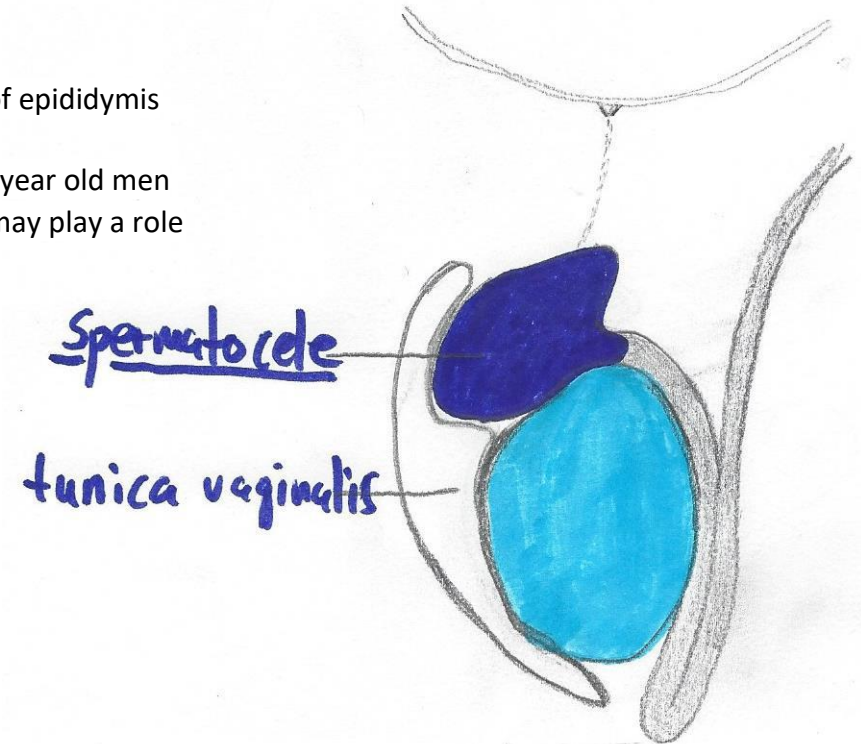 of epididymis
year old men
may play a role
spermatocele
tunica vaginalis